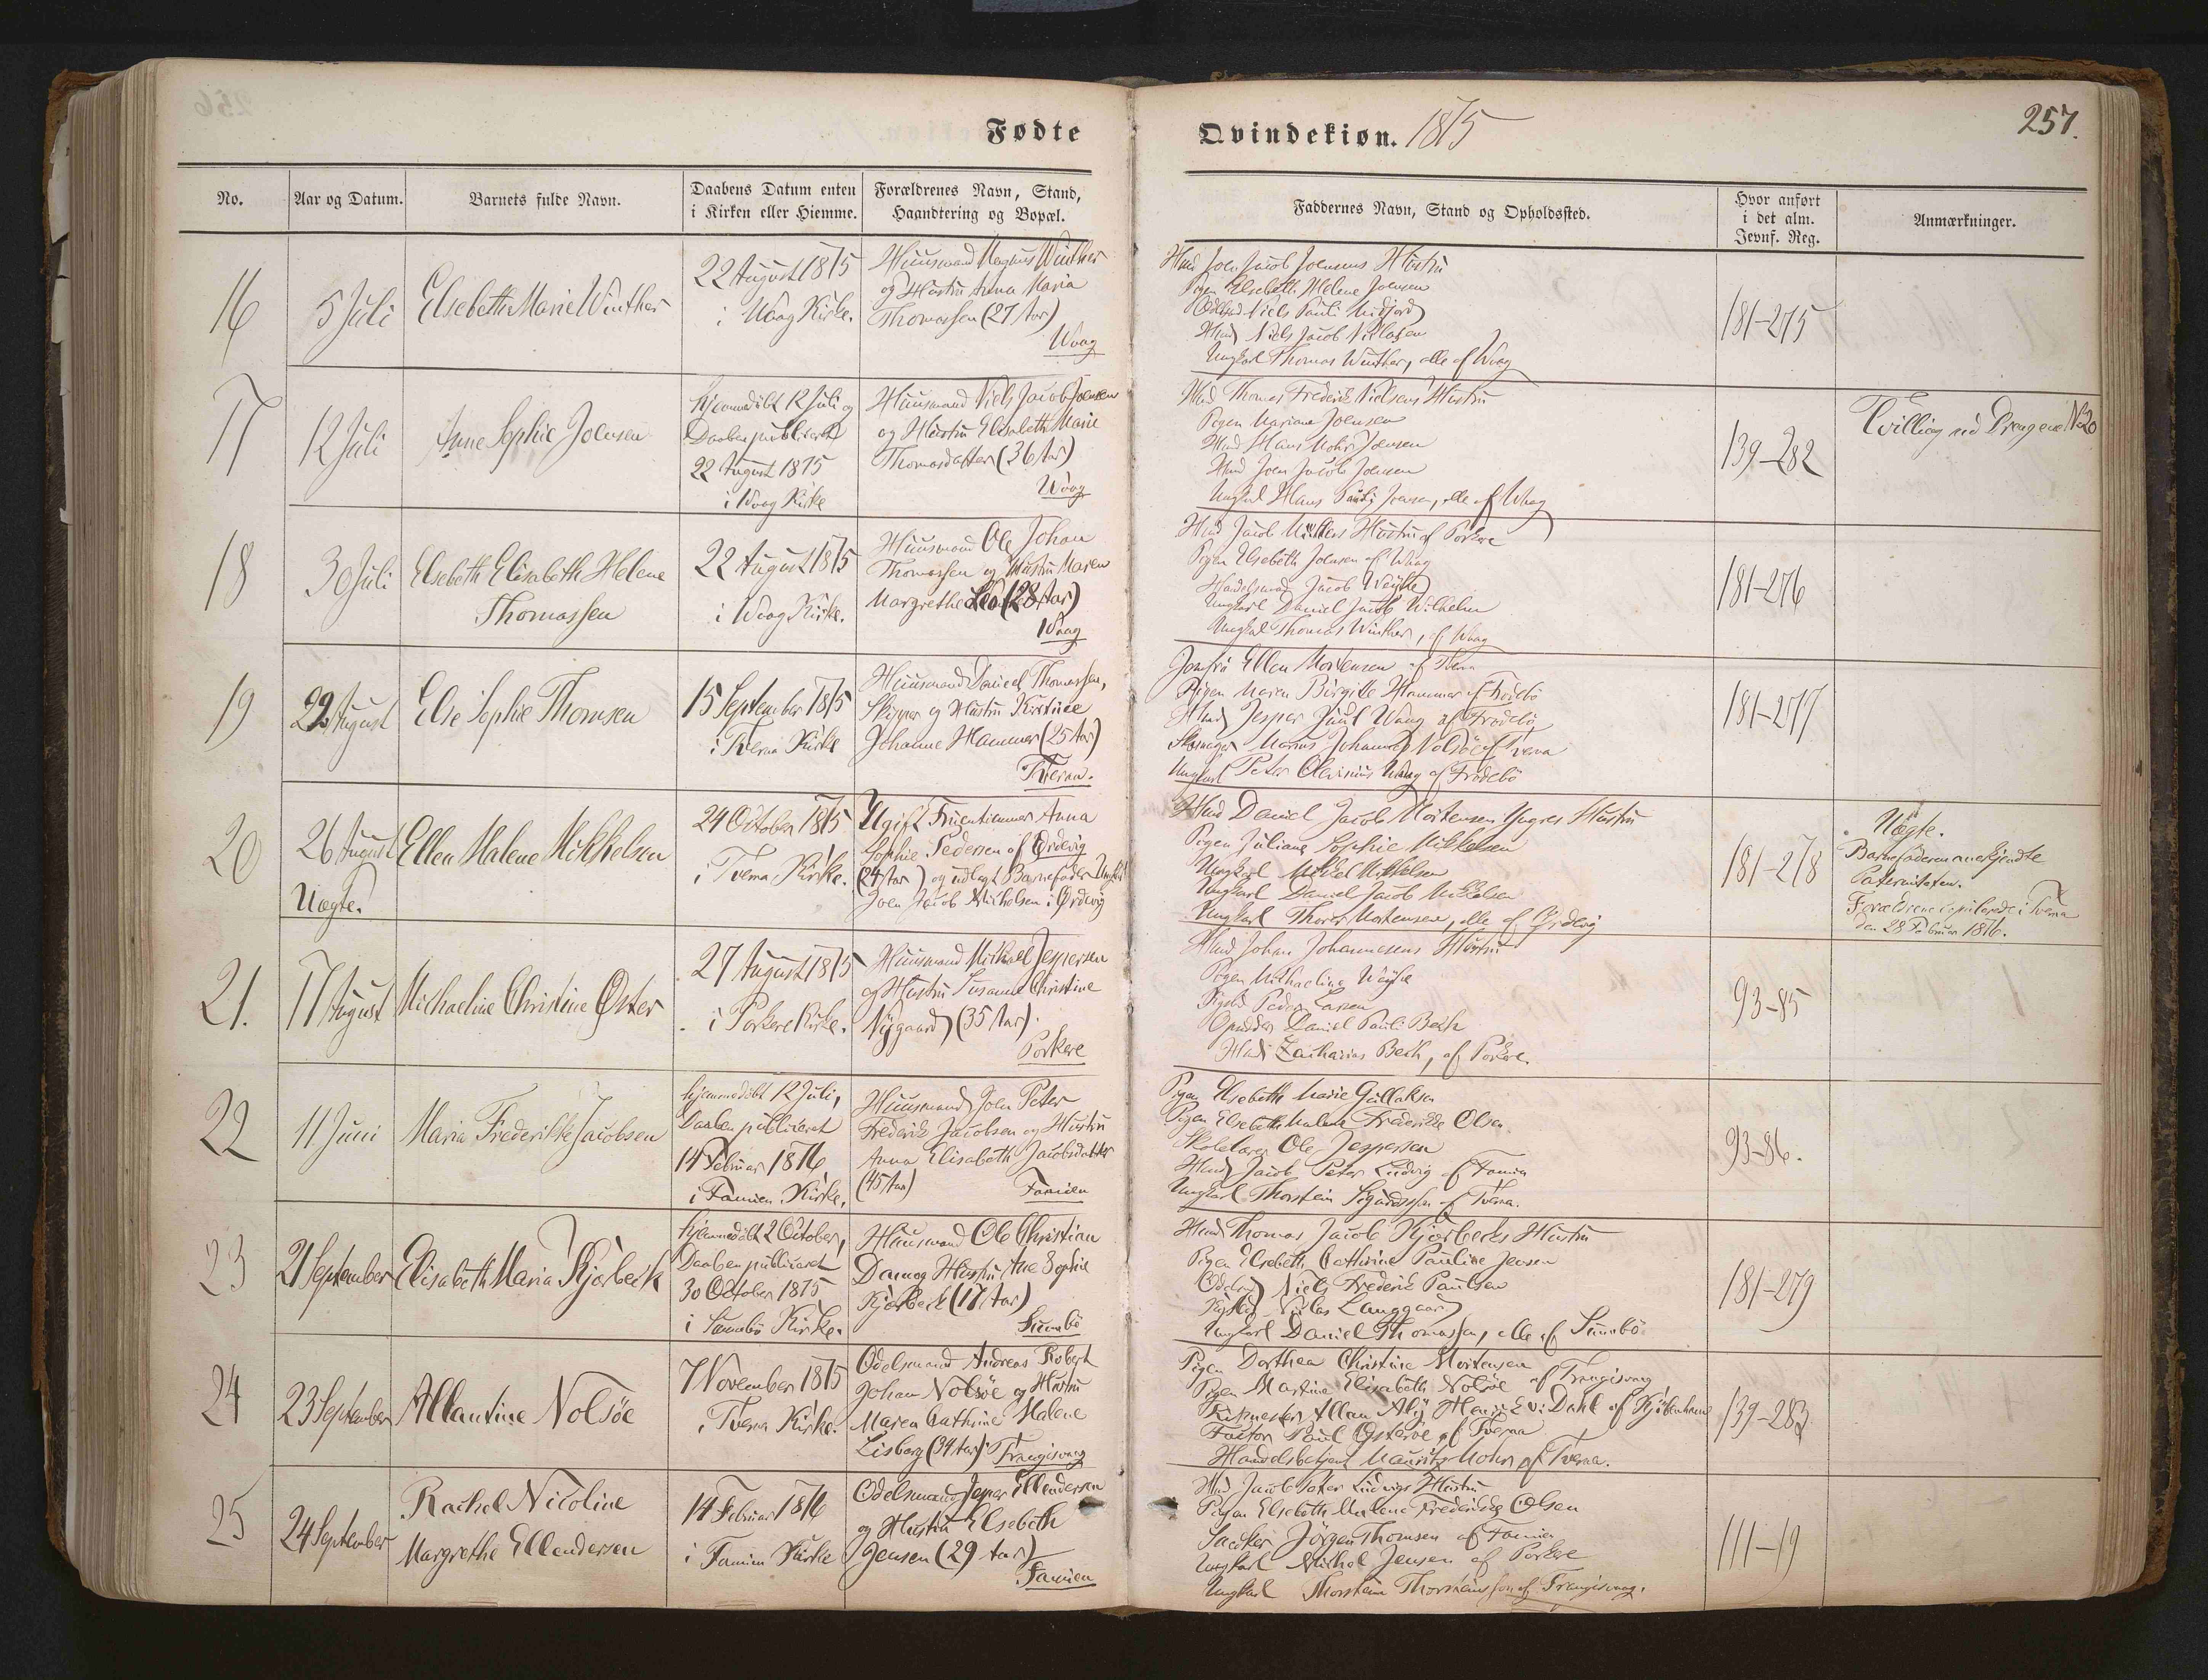 Fødte
Qvindekiøn. 1875
257.
No.
Aar og Datum.
Barnets fulde Navn.
Daabens Datum enten
i Kirken eller Hiemme.
Forældrenes Navn, Stand,
Haandtering og Bopæl.
Faddernes Navn, Stand og Opholdssted.
Hvor anført
i det alm.
Jevnf. Reg.
Anmærkninger.
16
5 Juli
Elsebeth Marie Winther
22 August 1875
i Waag Kirke.
Huusmand Magnus Winther
og Hustru Anna Maria
Thomassen (27 Aar)
Waag
Hmd Joen Jacob Joensens Hustru
Pigen Elsebeth Helene Joensen
Niels Pauli Midjord
Hmd Niels Jacob Niclasen
Ungkarl Thomas Winther, alle af Waag
181-275
17
12 Juli
Anne Sophie Joensen
Hjemmedøbt 12 Juli og
Daaben publiceret
22 August 1875
i Waag Kirke
Huusmand Niels Jacob Joensen
og Hustru Elisabeth Marie
Thomasdatter (36 Aar)
Waag
Hmd Thomas Frederik Nielsens Hustru
Pigen Mariane Joensen
Hmd Hans Mohr Joensen
Hmd Joen Jacob Joensen
Ungkarl Hans Pauli Joensen, alle af Waag
139-282
Tvilling med Drengene No 20
18
30 Juli
Elsebeth Elisabeth Helene
Thomassen
22 August 1875
i Waag Kirke.
Huusmand Ole Johan
Thomassen og Hustru Maren
Margrethe (28 Aar)
Waag
Hmd Jacob Winthers Hustru af Porkere
Pigen Elsebeth Joensen af Waag
Handelsmand Jacob Weyhe
Ungkarl Daniel Jacob Wilhelm
Ungkarl Thomas Winther, af Waag
181-276
19
29 August
Else Sophie Thomsen
15 September 1875
i Tveraa Kirke
Huusmand Daniel Thomassen,
Skipper og Hustru Kirstine
Johanne Hammer (25 Aar)
Tveraa.
Jomfru Ellen Mortensen af Tveraa
Pigen Maren Birgitte Hammer af Frodebø
Hmd Jesper Juul Waag af Frodebø
Skomager Marius Johannes Nolsøe af Tveraa
Ungkarl Peter Olevinus Waag af Frodebø
181-277
20
26 August
Uægte.
Ellen Malene Mikkelsen
24 October 1875
i Tveraa Kirke.
Ugift Fruentimmer Anna
Sophie Pedersen af Ørdevig
(24 Aar) og udlagt Barnefader Ungkarl
Joen Jacob Michelsen i Ørdevig
Hmd Daniel Jacob Mortensen Yngres Hustru
Pigen Juliane Sophie Mikkelsen
Ungkarl Mikkel Mikkelsen
Ungkarl Daniel Jacob Mikkelsen
Ungkarl Thomas Mortensen, alle af Ørdevig
181-278
Uægte.
Barnefaderen anerkjendte
Paterniteten.
Forældrene copulerede i Tveraa
den 28 Februar 1876.
21.
17 August
Michaeline Christine Øster
27 August 1875
i Porkere Kirke.
Huusmand Michael Jespersen
og Hustru Susanne Christine
Nygaard (35 Aar).
Porkere
Hmd Johan Johannesens Hustru
Pigen Michaeline Weyhe
Peder Larsen
Opsidder Daniel Pauli Bech
Hmd Zacharias Bech, af Porkere.
93-85
22
11 Juni
Maria Frederikke Jacobsen
Hjemmedøbt 12 Juli,
Daaben publiceret
14 Februar 1876,
i Famien Kirke.
Huusmand Joen Peter
Frederik Jacobsen og Hustru
Anna Elisabeth Jacobsdatter
(45 Aar)
Famien
Pigen Elsebeth Marie Gullaksen
Pigen Elsebeth Malene Frederikke Olsen
Skolelærer Ole Jespersen
Hmd Jacob Peter Ludvig af Famien
Ungkarl Thorstein Sigurdssøn af Tveraa.
93-86.
23
21 September
Elisabeth Maria Kjørbeck
Hjemmedøbt 2 October,
Daaben publiceret
30 October 1875
i Sumbø Kirke.
Huusmand Ole Christian
Dam og Hustru Ane Sophie
Kjørbeck (17 Aar)
Sumbø
Hmd Thomas Jacob Kjørbecks Hustru
Pigen Elsebeth Cathrine Pauline Jensen
Niels Frederik Paulsen
Niclas Langgaard
Ungkarl Daniel Thomassen, alle af Sumbø
181-279
24
23 September
Allantine Nolsöe
7 November 1875
i Tveraa Kirke.
Odelsmand Andreas Robert
Johan Nolsøe og Hustru
Maren Cathrine Malene
Lisberg (34 Aar). Trangisvaag
Pigen Dorthea Christine Mortensen
Pigen Martine Elisabeth Nolsøe af Trangisvaag
Allan Aly Dahl af Kjøbenhavn
Factor Poul Østerøe af Tveraa
Handelsbetjent Mauritz Mohr af Tveraa.
139-283
25
24 September
Rachel Nicoline
Margrethe Ellendersen
14 Februar 1876
i Famien Kirke
Odelsmand Jesper Ellendersen
og Hustru Elsebeth
Jensen (29 Aar)
Famien
Hmd Jacob Peter Ludvigs Hustru
Pigen Elsebeth Malene Frederikke Olsen
Jørgen Thomsen af Famien
Ungkarl Michal Jensen af Porkere
Ungkarl Thorstein Thorsteinssøn af Trangisvaag.
111-19